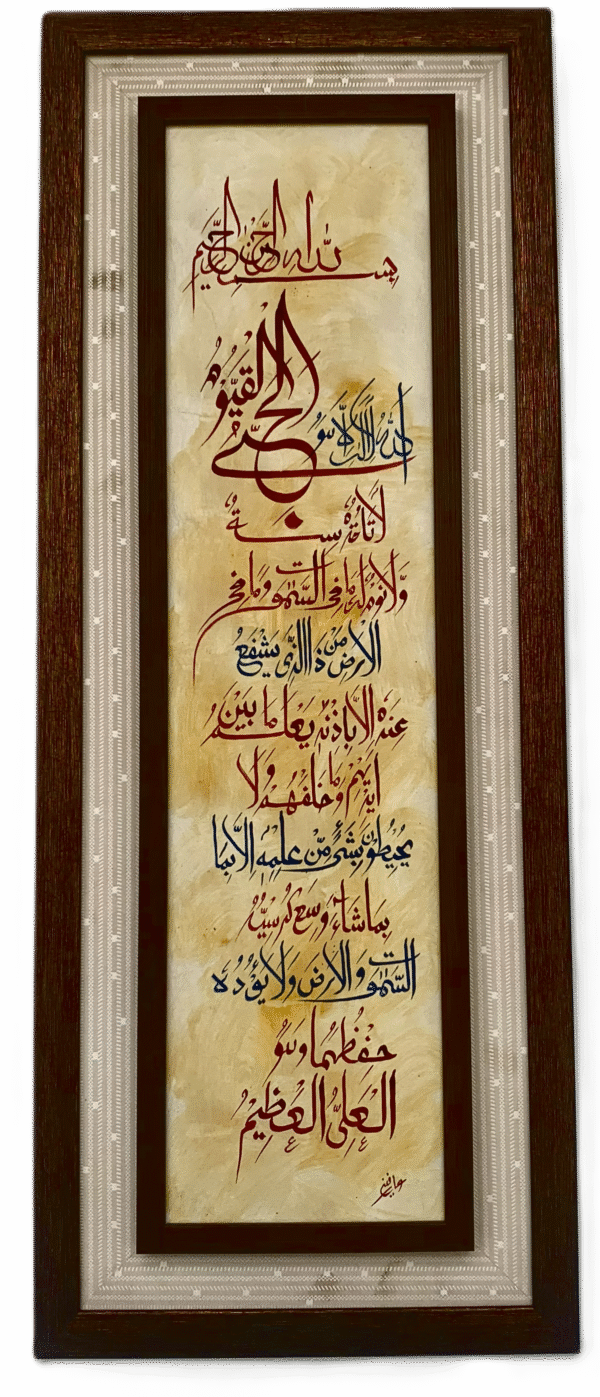 بسم الله الرحمن الرحيم
الله لا اله الا هو الحي القيوم
لا تأخذه سنة
ولا نوم له ما في السموت وما في
الارض من ذا الذي يشفع
عنده الا باذنه يعلم ما بين
ايديهم وما خلفهم ولا
يحيطون بشيء من علمه الا بما
بما شاء وسع كرسيه
السموت والارض ولا يؤده
حفظهما وهو
العلي العظيم